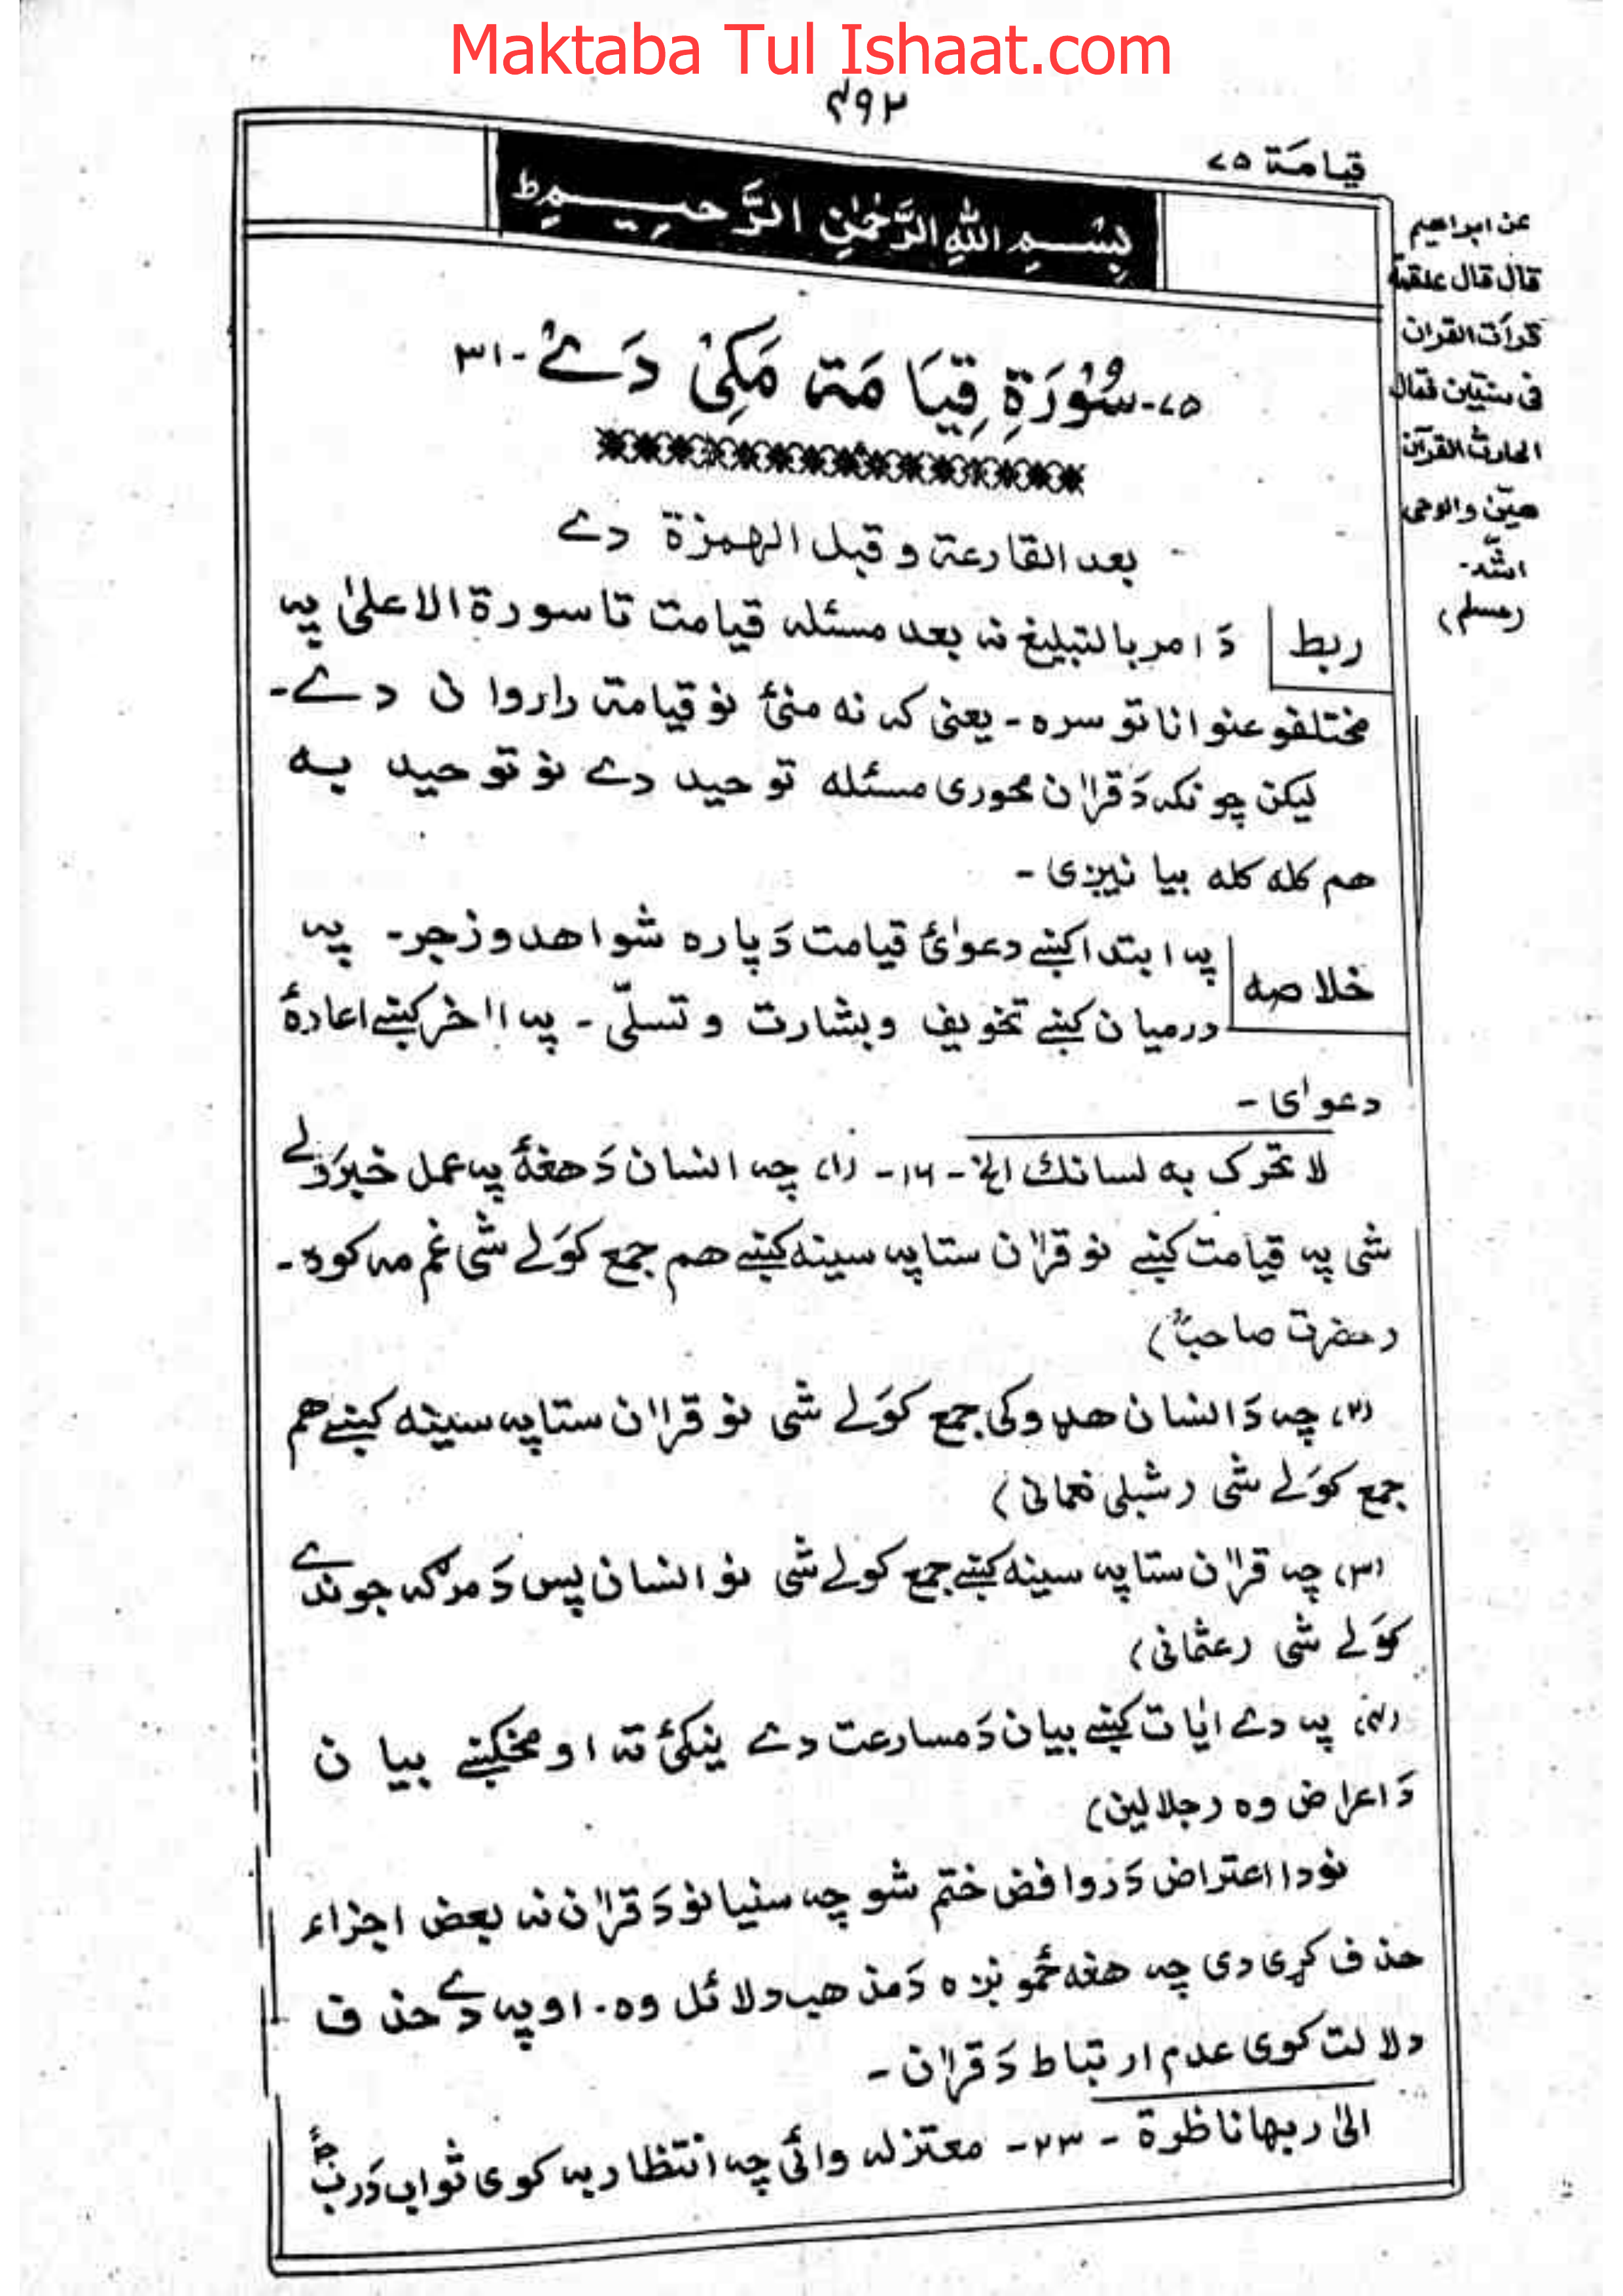 Maktaba Tul Ishaat.com
۴۹۲
قیامة ۷۵
بِسْمِ اللهِ الرَّحْمٰنِ الرَّحِیْمِ ط
۷۵- سُوْرَةِ قِیَامَة مَکِیْ دَےْ - ۳۱
بعد القارعة و قبل الهمزة دے
ربط
دَ امر بالتبلیغ نه بعد مسئله قیامت تا سورة الاعلیٰ په
مختلفو عنواناتو سره - یعنی که نه منئ نو قیامة راروان دے -
لیکن چونکه دَ قراٰن محوری مسئله توحید دے نو توحید به
هم کله کله بیانیږی -
خلاصه
په ابتدا کښے دعوائ قیامت دَپاره شواهد و زجر - په
درمیان کښے تخویف و بشارت و تسلّی - په اٰخر کښے اعادۀ
دعوای -
لا تحرک به لسانك الخ - ۱۶ - (۱) چه انسان دَ هغۀ په عمل خبرَولے
شی په قیامت کښے نو قراٰن ستا په سینه کښے هم جمع کوَلے شی غم مه کوه -
(حضرت صاحبؒ)
(۲) چه دَ انسان هډوکی جمع کوَلے شی نو قراٰن ستا په سینه کښے هم
جمع کوَلے شی (شبلی نعمانی)
(۳) چه قراٰن ستا په سینه کښے جمع کولے شی نو انسان پس دَ مرګه جوندے
کوَلے شی (عثمانی)
(۴) په دے اٰیات کښے بیان دَ مسارعت دے ښکئ ته او مخکښے بیان
دَ اعراض وه (جلالین)
نو دا اعتراض دَ روافض ختم شو چه سنیانو دَ قراٰن نه بعض اجزاء
حذف کړی دی چه هغه څمونږه دَ مذهب دلائل وه - او په دے حذف
دلالت کوی عدم ارتباط دَ قراٰن -
الیٰ ربها ناظرة - ۲۳ - معتزله وائی چه انتظار به کوی ثواب دَ ربّ
عن ابراهیم
قال قال علقمة
قرأت القران
فی سنتین فقال
الحارث القرآن
هیّن والوحی
اشدّ -
(مسلم)